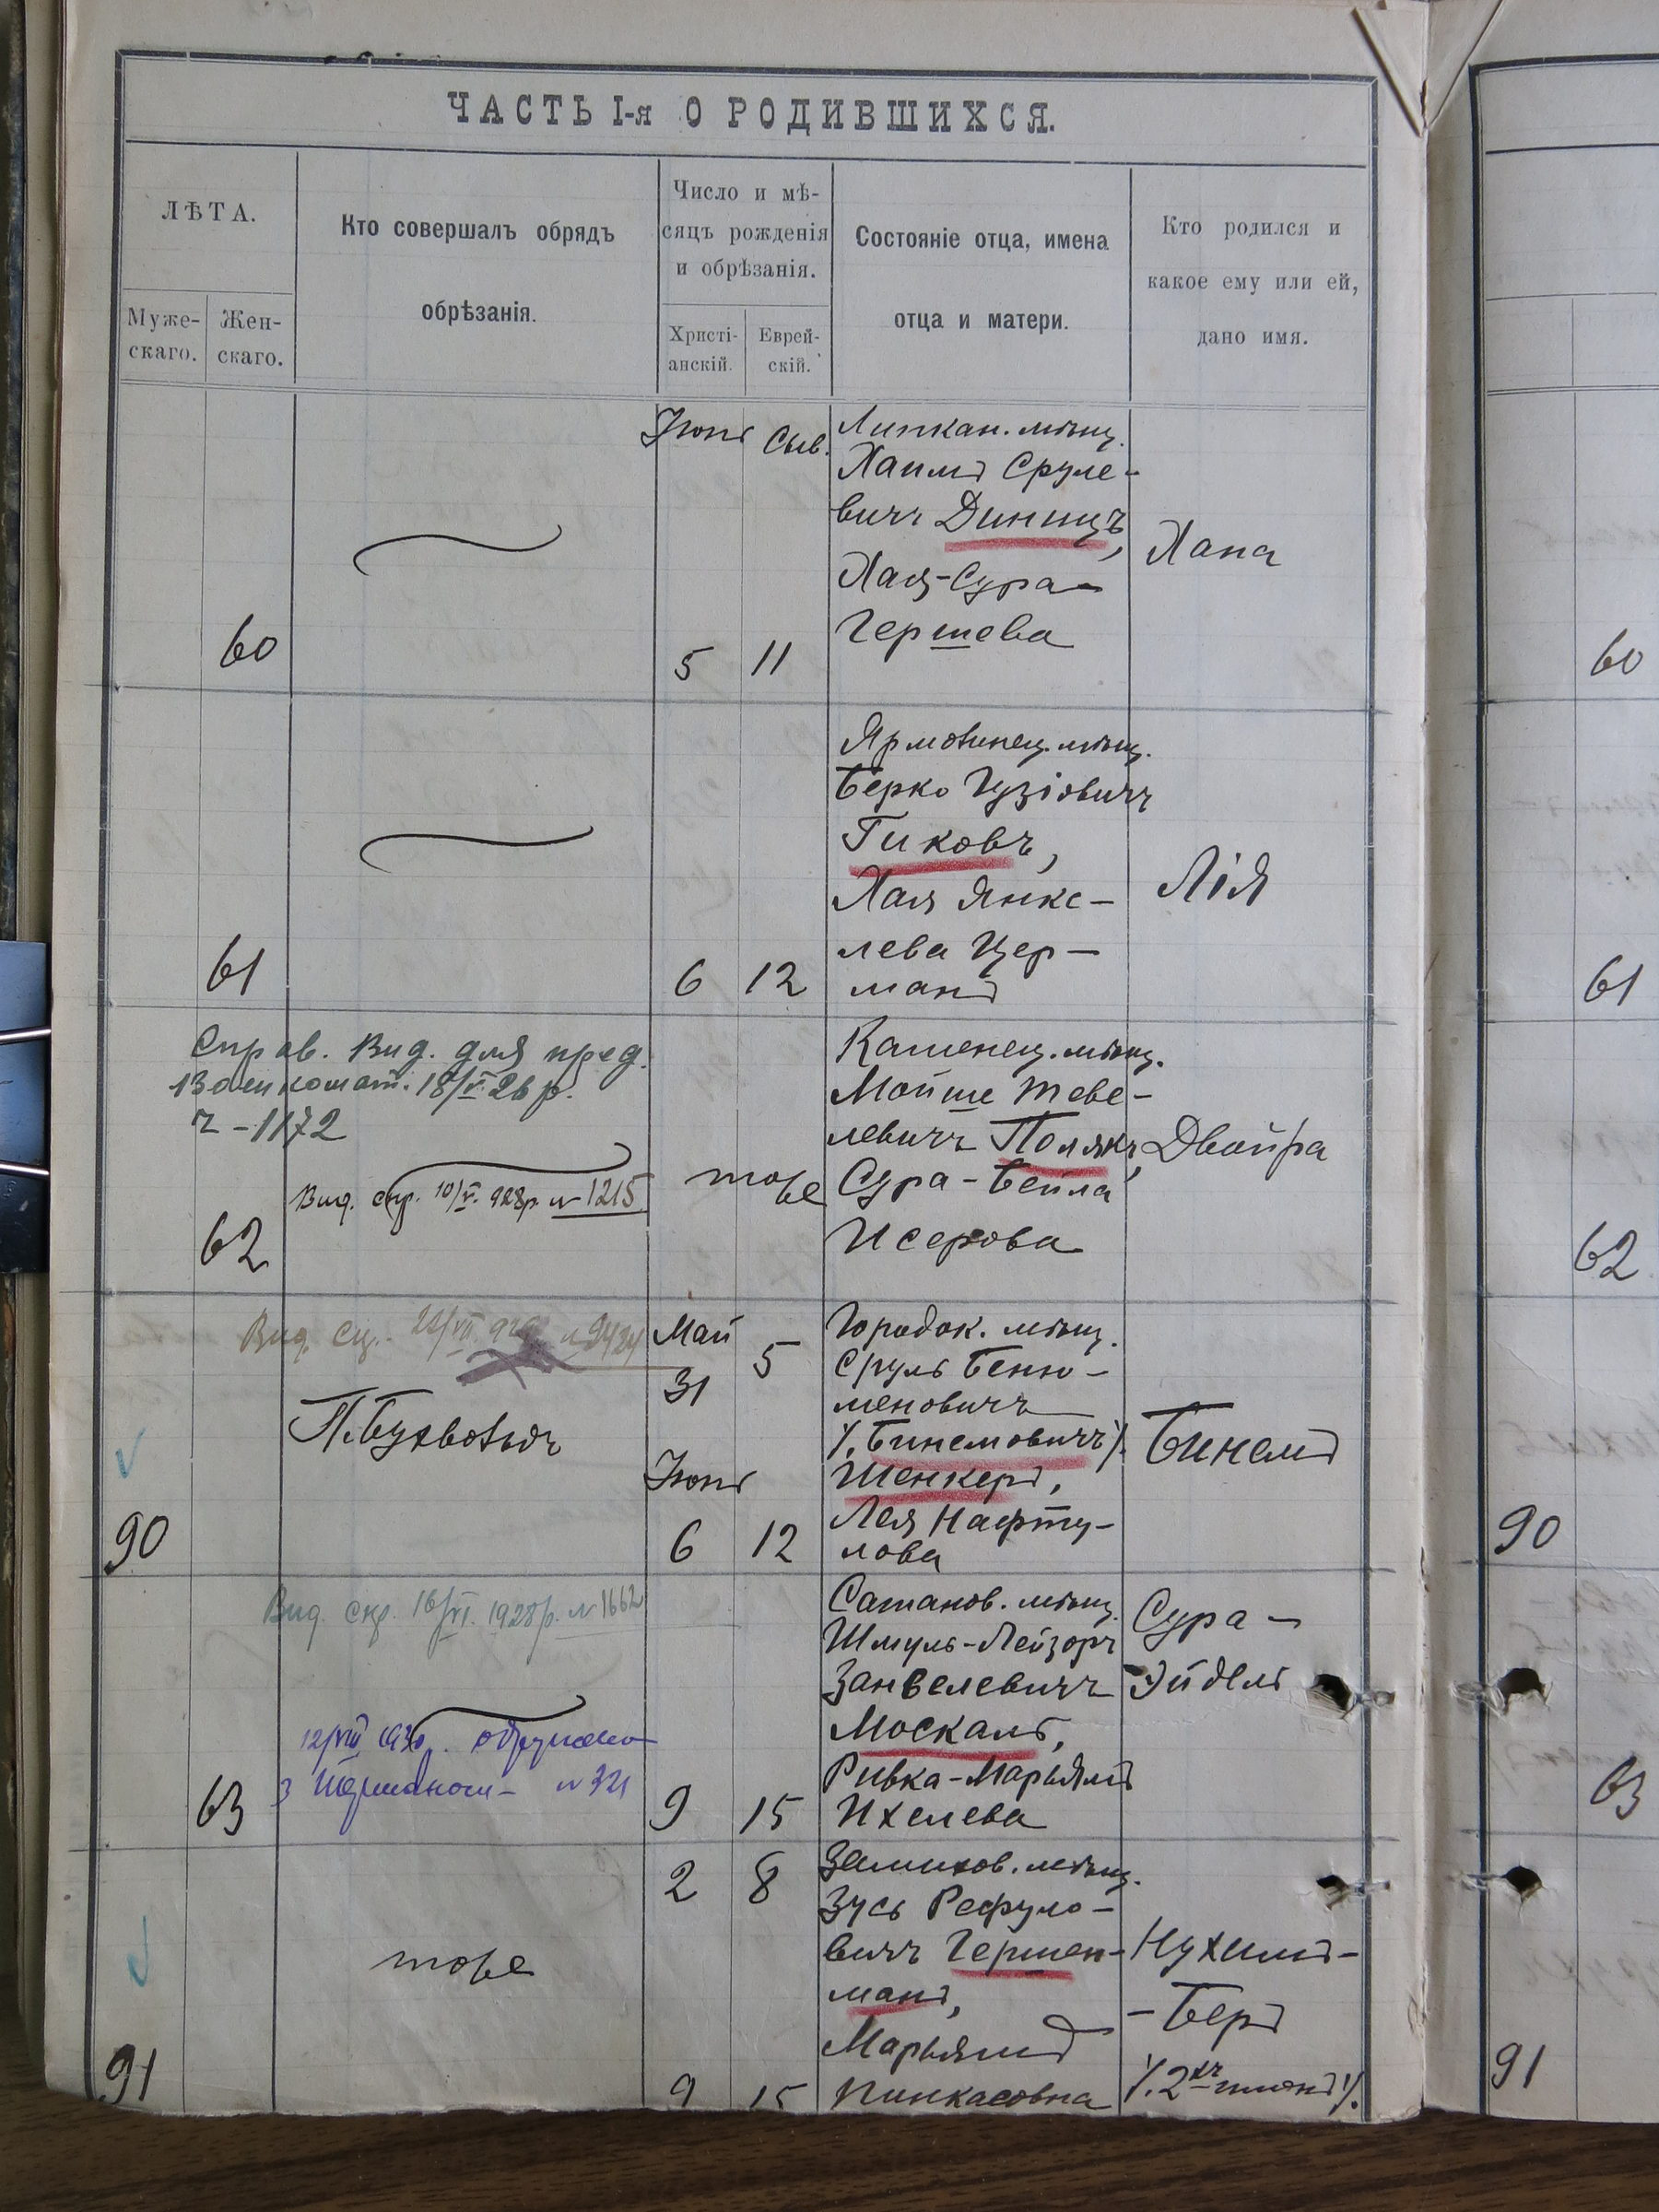 ЧАСТЬ I-я О РОДИВШИХСЯ.
ЛѢТА.
Муже-
скаго.
Жен-
скаго.
Кто совершалъ обрядъ
обрѣзанія.
Число и мѣ-
сяцъ рожденія
и обрѣзанія.
Христі-
анскій.
Еврей-
скій.
Состояніе отца, имена
отца и матери.
Кто родился и
какое ему или ей,
дано имя.
60
Іюнь Сыв.
5 11
Липкан. мѣщ.
Хаимъ Сруле-
вичъ Диницъ,
Хая-Сура
Гершева
Хана
60
61
6 12
Ярмолинец. мѣщ.
Берко Гузіовичъ
Гиковъ,
Хая Янке-
лева Цер-
манъ
Лія
61
Справ. Вид. для пред.
Военкомат. 18/V 26 р.
ч-1172
Вид. спр. 10/V. 928р. № 1215
62
тоже
Каменец. мѣщ.
Мойше Теве-
левичъ Полякъ,
Сура-Бейла
Исерова
Двойра
62
Вид. № 2424
П. Бухвовъ
90
Май
31 5
Іюнь
6 12
Городок. мѣщ.
Сруль Беню-
меновичъ
/. Бинемовичъ /.
Шенкеръ,
Лея Нафту-
лова
Бинемъ
90
Вид. спр. 16/VI. 1928р. № 1662
12/VIII 1930р. одружено
з № 321
63
9 15
Сатанов. мѣщ.
Шмуль-Лейзоръ
Занвелевичъ
Москаль,
Ривка-Марьямъ
Ихелева
Сура-
Эйдель
63
тоже
91
2 8
9 15
Замихов. мѣщ.
Зусь Рефуло-
вичъ Гершен-
манъ,
Марьямъ
Пинкасовна
Нухимъ-
-Беръ
91